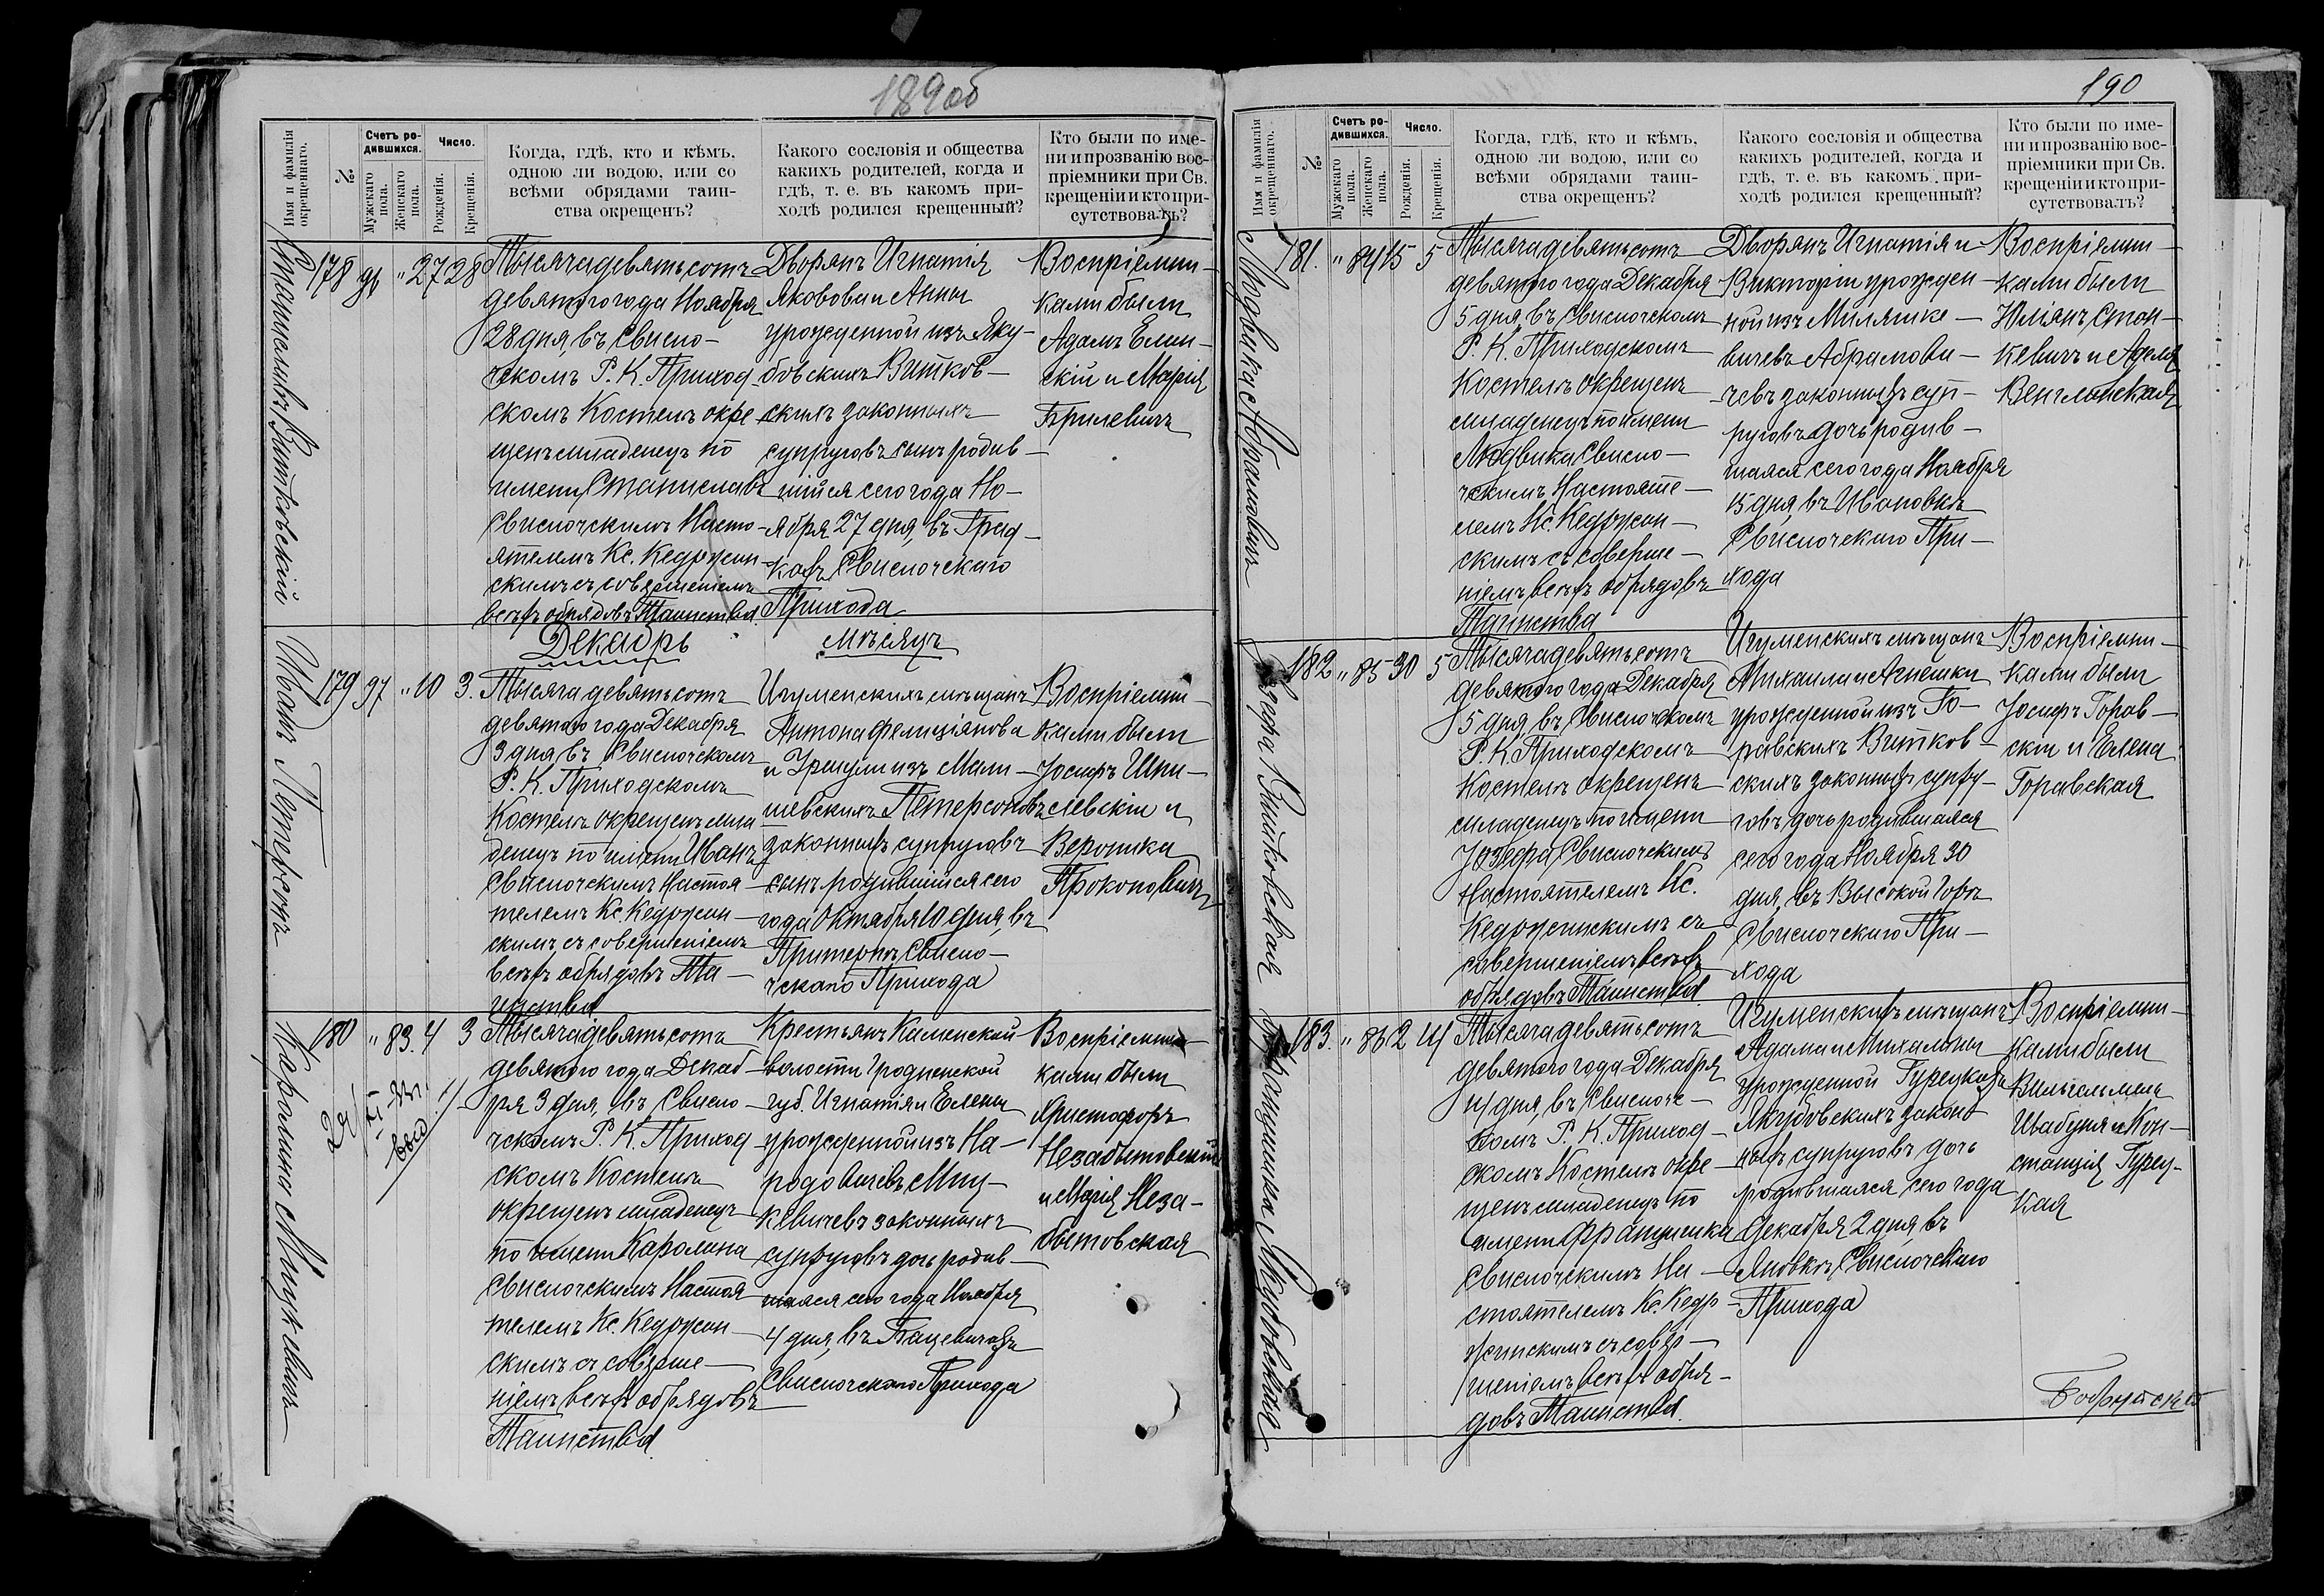 189об
Имя и фамилія
окрещеннаго.
№
Счетъ ро-
дившихся.
Мужскаго
пола.
Женскаго
пола.
Число.
Рожденія.
Крещенія.
Когда, гдѣ, кто и кѣмъ,
одною ли водою, или со
всѣми обрядами таин-
ства окрещенъ?
Какого сословія и общества
какихъ родителей, когда и
гдѣ, т. е. въ какомъ при-
ходѣ родился крещенный?
Кто были по име-
ни и прозванію вос-
пріемники при Св.
крещеніи и кто при-
сутствовалъ?
Станиславъ Витковскій
178 96 " 27 28
Тысяча девятьсотъ
девятого года Ноября
28 дня, въ Свисло-
чскомъ Р. К. Приход
скомъ Костелѣ окре
щенъ младенецъ по
имени Станиславъ
Свислочскимъ Насто-
ятелемъ Кс. Кедржин
скимъ съ совершеніемъ
всѣхъ обрядовъ Таинства
Дворянъ Игнатія
Яковова и Анны
урожденной изъ Яку-
бовскихъ Витков-
скихъ законныхъ
супруговъ сынъ родив-
шійся сего года Но-
ября 27 дня, въ
Свислочскаго
Прихода
Воспріемни-
ками были
Адамъ Елин-
скій и Марія
Брилевичъ
Декабрь мѣсяцъ
Иванъ Петерсонъ
179 97 " 10 3.
Тысяча девятьсотъ
девятого года Декабря
3 дня, въ Свислочскомъ
Р. К. Приходскомъ
Костелѣ окрещенъ мла
денецъ по имени Иванъ
Свислочскимъ Настоя-
телемъ Кс. Кедржин-
скимъ съ совершеніемъ
всѣхъ обрядовъ Та-
инства
Игуменскихъ мѣщанъ
Антона Фелиціянова
и Уршули изъ Мали-
шевскихъ Петерсоновъ
законныхъ супруговъ
сынъ родившійся сего
года Октября 10 дня, въ
Свисло-
чскаго Прихода
Воспріемни-
ками были
Іосифъ Шпи-
левскій и
Вероника
Прокоповичъ
Каролина Мицкевичъ
180 " 83. 4 3
Тысяча девятьсотъ
девятого года Декаб-
ря 3 дня, въ Свисло-
чскомъ Р. К. Приход
скомъ Костелѣ
окрещенъ младенецъ
по имени Каролина
Свислочскимъ Настоя
телемъ Кс. Кедржин-
скимъ съ соверше-
ніемъ всѣхъ обрядовъ
Таинства
Крестьянъ Каменской
волости Гродненской
губ. Игнатія и Елены
урожденной изъ На-
родовичевъ Миц-
кевичевъ законныхъ
супруговъ дочь родив-
шаяся сего года Ноября
4 дня, въ Бацевичахъ
Свислочскаго Прихода
Воспріемни-
ками были
Христофоръ
Незабытовскій
и Марія Неза-
бытовская
190
Имя и фамилія
окрещеннаго.
№
Счетъ ро-
дившихся.
Мужскаго
пола.
Женскаго
пола.
Число.
Рожденія.
Крещенія.
Когда, гдѣ, кто и кѣмъ,
одною ли водою, или со
всѣми обрядами таин-
ства окрещенъ?
Какого сословія и общества
какихъ родителей, когда и
гдѣ, т. е. въ какомъ при-
ходѣ родился крещенный?
Кто были по име-
ни и прозванію вос-
пріемники при Св.
крещеніи и кто при-
сутствовалъ?
Людвика Абрамовичъ
181. " 84 15 5
Тысяча девятьсотъ
девятого года Декабря
5 дня, въ Свислочскомъ
Р. К. Приходскомъ
Костелѣ окрещенъ
младенецъ по имени
Людвика Свисло-
чскимъ Настояте-
лемъ Кс. Кедржин-
скимъ съ соверше-
ніемъ всѣхъ обрядовъ
Таинства
Дворянъ Игнатія и
Викторіи урожден-
ной изъ
Абрамови-
чевъ законныхъ суп-
руговъ дочь родив-
шаяся сего года Ноября
15 дня, въ Ивановкѣ
Свислочскаго При-
хода
Воспріемни-
ками были
Юліянъ Стан-
кевичъ и Аделя
Венглинская
Юзефа Витковская
182 " 85 30 5
Тысяча девятьсотъ
девятого года Декабря
5 дня, въ Свислочскомъ
Р. К. Приходскомъ
Костелѣ окрещенъ
младенецъ по имени
Юзефа Свислочскимъ
Настоятелемъ Кс.
Кедржинскимъ съ
совершеніемъ всѣхъ
обрядовъ Таинства
Игуменскихъ мѣщанъ
Михаила и Агнешки
урожденной изъ Го-
равскихъ Витков-
скихъ законныхъ супру-
говъ дочь родившаяся
сего года Ноября 30
дня, въ Высокой Горѣ
Свислочскаго При-
хода
Воспріемни-
ками были
Іосифъ Горав-
скій и Елена
Горавская
Францишка Якубовская
183. " 86 2 14
Тысяча девятьсотъ
девятого года Декабря
14 дня, въ Свислоч-
скомъ Р. К. Приход-
скомъ Костелѣ окре-
щенъ младенецъ по
имени Францишка
Свислочскимъ На-
стоятелемъ Кс. Кедр-
жинскимъ съ совер-
шеніемъ всѣхъ обря-
довъ Таинства
Игуменскихъ мѣщанъ
Адама и Михалины
урожденной Гурецкой
Якубовскихъ закон-
ныхъ супруговъ дочь
родившаяся сего года
Декабря 2 дня, въ
Яновкѣ, Свислочскаго
Прихода
Воспріемни-
ками были
Вильгельмъ
и Кон-
станція Гурец-
кая